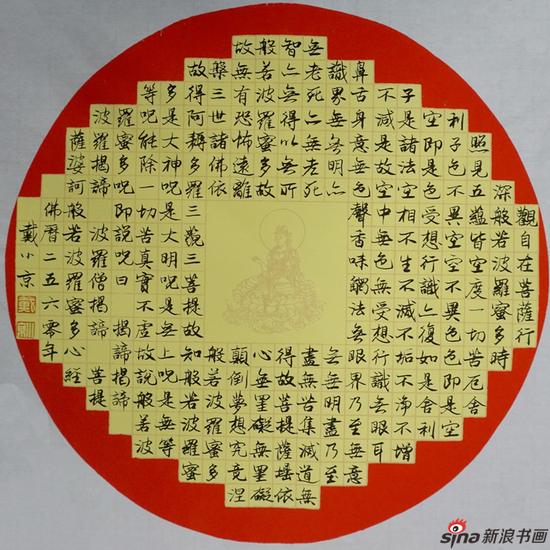 觀自在菩薩行
深般若波羅蜜多時
照見五蘊皆空度一切苦厄舍
利子色不異空空不異色色即是空
空即是色受想行識亦復如是舍利
子是諸法空相不生不滅不垢不淨不增
不減是故空中無色無受想行識無眼耳
鼻舌身意無色聲香味觸法無眼界乃至無意
識界無無明亦
無無明盡乃至
無老死亦無老死
盡無苦集滅道無
智亦無得以無所
得故菩提薩埵依
般若波羅蜜多故
心無罣礙無罣礙
故無有恐怖遠離
顛倒夢想究竟涅
槃三世諸佛依
般若波羅蜜多
故得阿耨多羅三藐三菩提故知般若波羅蜜
多是大神呪是大明呪是無上呪是無等
等呪能除一切苦真實不虛故說般若波
羅蜜多呪即說呪曰 揭諦揭諦
波羅揭諦 波羅僧揭諦 菩提
薩婆訶 般若波羅蜜多心經
佛曆二五六零年
戴小京
sina新浪书画